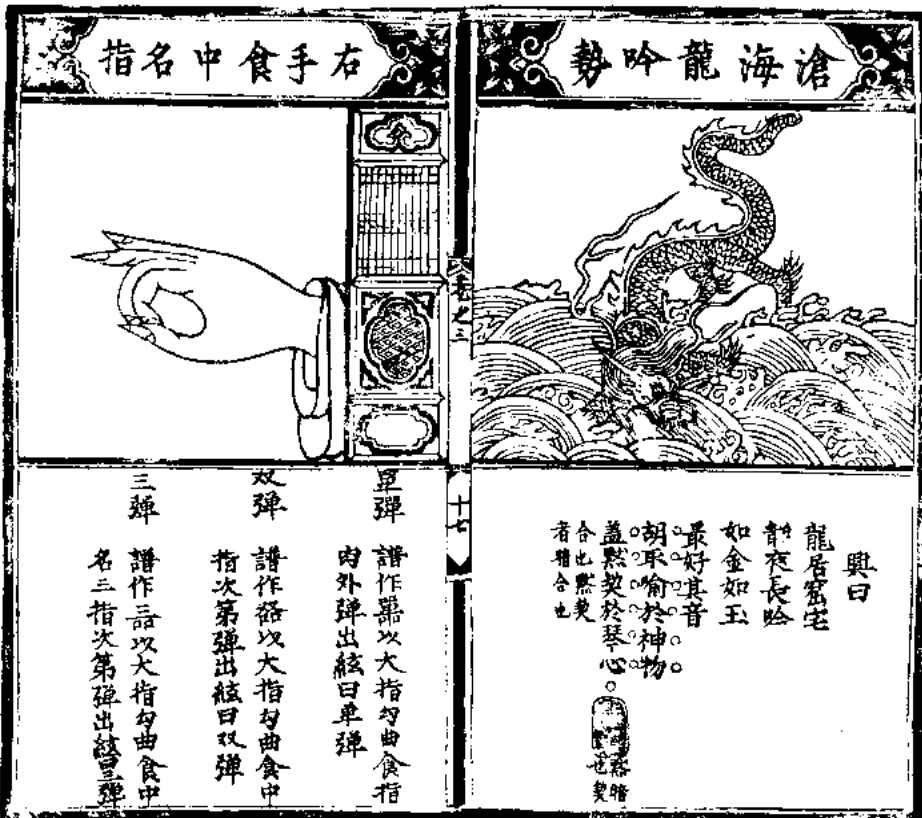 滄海龍吟勢
興曰
龍居窟宅
静夜長吟
如金如玉
最好其音
胡取喻於神物
盖黙契於琴心
合也黙契
者暗合也
之三
十七
右手食中名指
單彈
譜作以大指勾曲食指
肉外彈出絃曰单彈
双彈
譜作以大指勾曲食中
指次第彈出絃曰双彈
三彈
譜作以大指勾曲食中
名三指次第彈出絃曰三彈